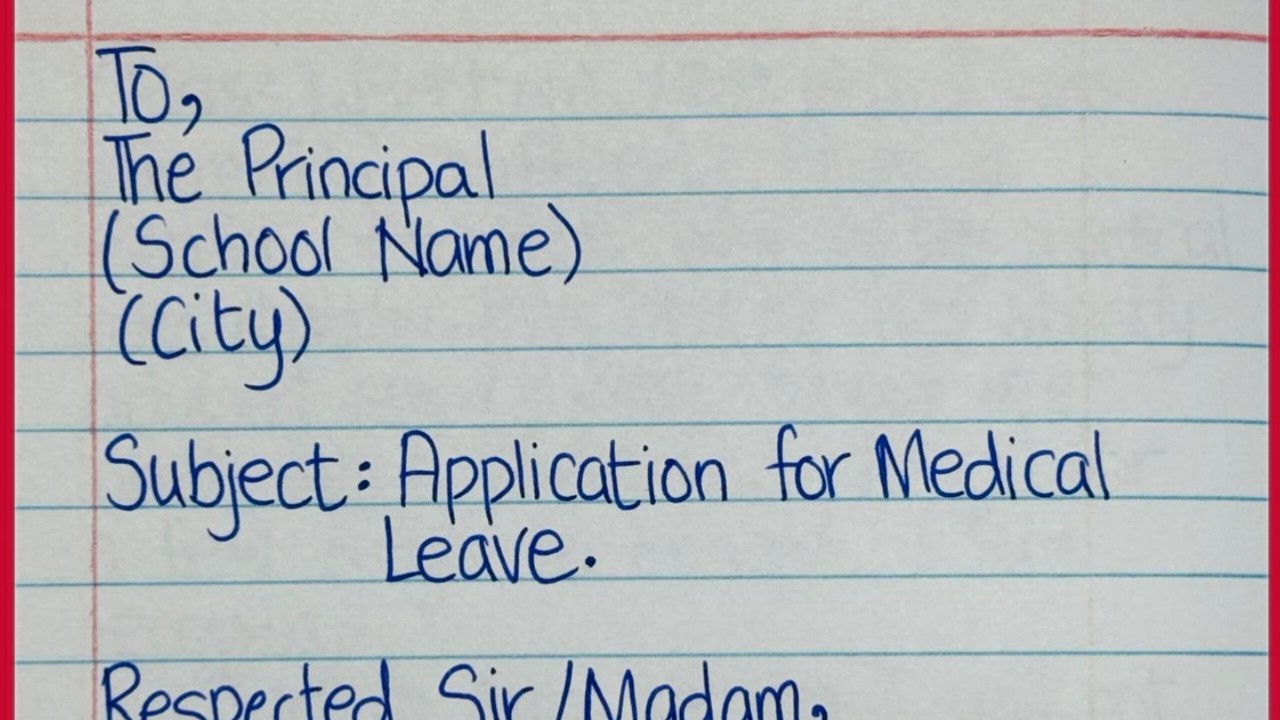 To,
The Principal
(School Name)
(City)
Subject: Application for Medical
Leave.
Respected Sir/Madam,